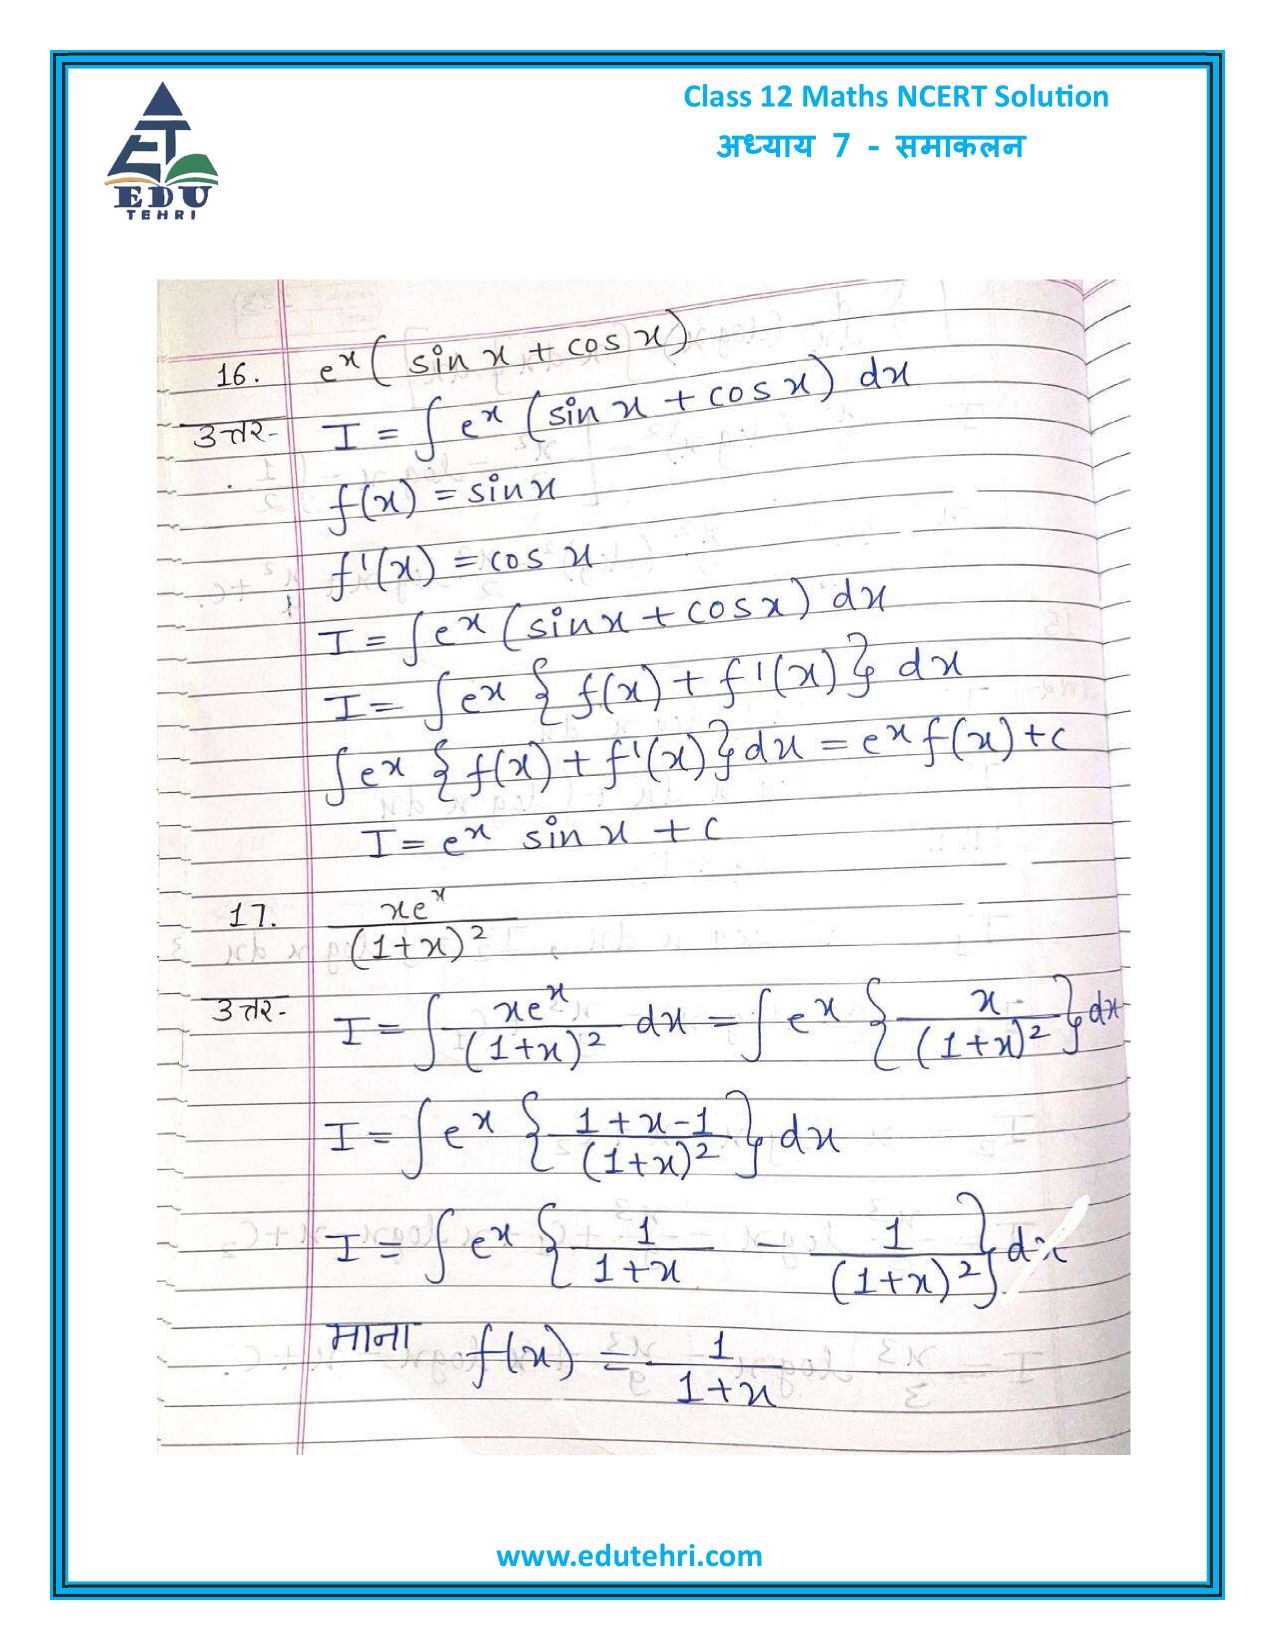 Class 12 Maths NCERT Solution
अध्याय 7 - समाकलन
EDU
TEHRI
16. e^x (sin x + cos x)
उत्तर- I = ∫ e^x (sin x + cos x) dx
f(x) = sin x
f'(x) = cos x
I = ∫ e^x (sin x + cos x) dx
I = ∫ e^x { f(x) + f'(x) } dx
∫ e^x { f(x) + f'(x) } dx = e^x f(x) + c
I = e^x sin x + c
17. xe^x / (1+x)^2
उत्तर- I = ∫ xe^x / (1+x)^2 dx = ∫ e^x { x / (1+x)^2 } dx
I = ∫ e^x { 1+x-1 / (1+x)^2 } dx
I = ∫ e^x { 1 / 1+x - 1 / (1+x)^2 } dx
माना f(x) = 1 / 1+x
www.edutehri.com